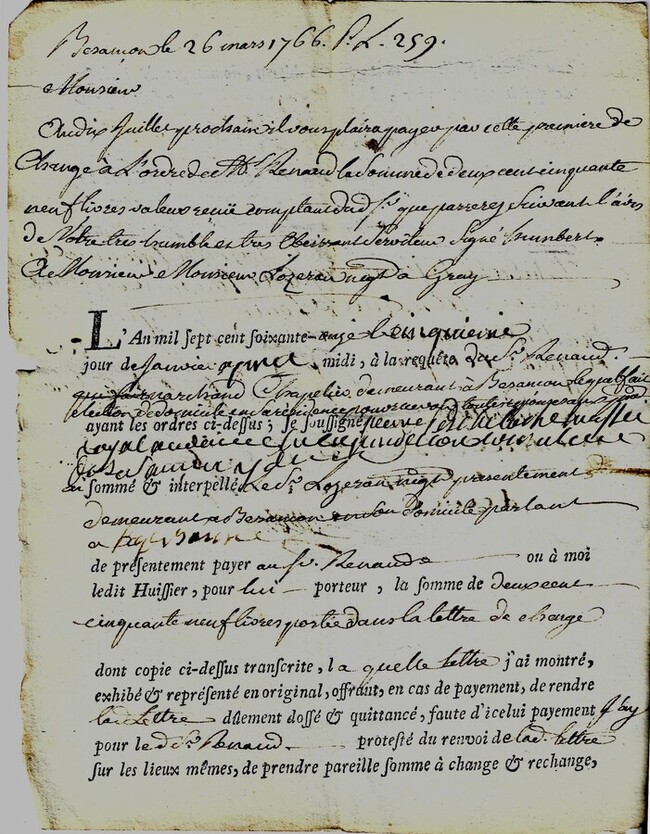 Besançon le 26 mars 1766. P. L. 259.
Monsieur
Au dix Juillet prochain il vous plaira payer par cette premiere de
Change à L'ordre de Mr. Renaud la Somme de deux cent cinquante
neuf livres valeur recüe comptant dud. Sr. que passerez Suivant L'avis
de Votre tres humble et tres Obeissant Serviteur Signé humbert.
A Monsieur Monsieur Lozeran negt. à Gray
L'An mil sept cent soixante-onze le cinquieme
jour de Janvier apres midi, à la requête du Sr. Renaud
marchand Chapelier demeurant à Besançon lequel fait
election de domicile en sa residence
ayant les ordres ci-dessus; je soussigné
royal
Besançon y
ai sommé & interpellé Le Sr. Lozeran negt. presentement
demeurant a Besancon en son Domicile parlant
a
de présentement payer au Sr. Renaud ou à moi
ledit Huissier, pour lui porteur, la somme de deux cent
cinquante neuf livres portée dans la lettre de change
dont copie ci-dessus transcrite, la quelle lettre j'ai montré,
exhibé & représenté en original, offrant, en cas de payement, de rendre
lad. Lettre dûement dossé & quittancé, faute d'icelui payement j'ay
pour le d. Sr. Renaud protesté du renvoi de lad. lettre
sur les lieux mêmes, de prendre pareille somme à change & rechange,